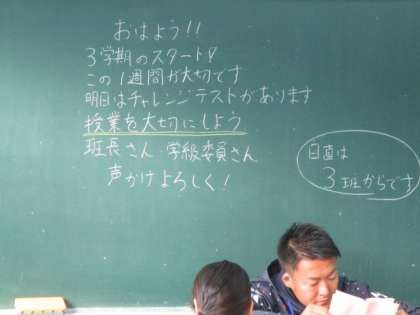 おはよう!!
3学期のスタート!
この1週間が大切です
明日はチャレンジテストがあります
授業を大切にしよう
班長さん 学級委員さん
声かけよろしく!
日直は
3班からです